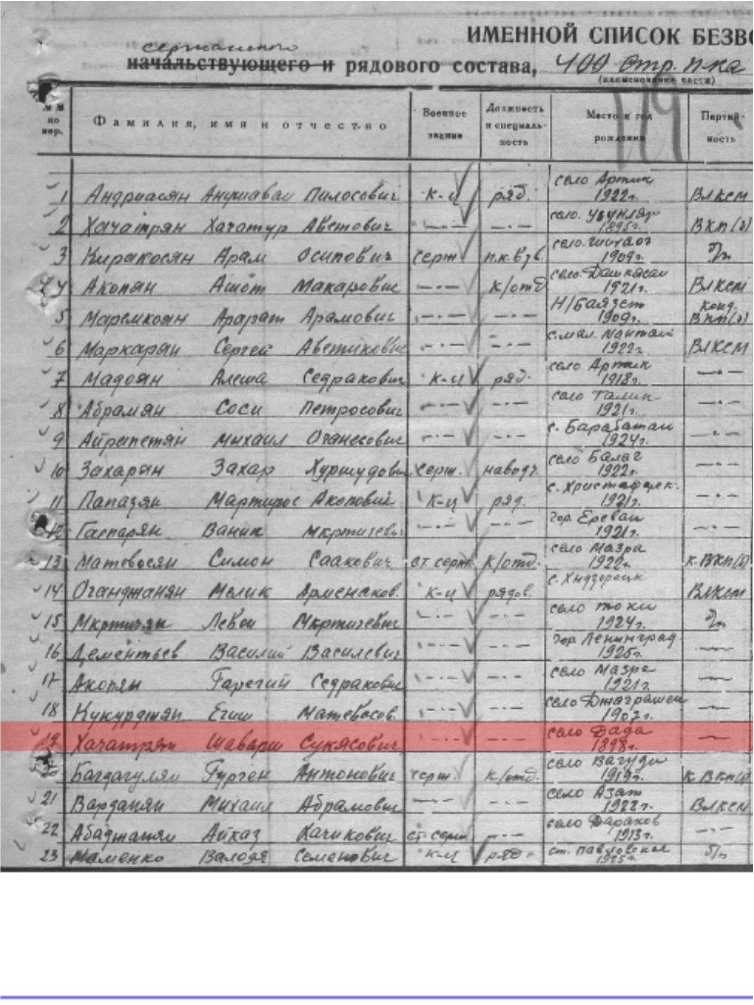 ИМЕННОЙ СПИСОК БЕЗВО
сержантского
начальствующего и рядового состава, 400 стр. п-ка
(наименование части)
№№ по пор. Фамилия, имя и отчество Военное звание Должность и специаль- ность Место и год рождения Партий- ность
1 Андриасян Анушаван Пилосович к-ц ряд. село Артик 1922г. ВЛКСМ
2 Хачатрян Хачатур Аветович —·— —·— село 1895г. ВКП(б)
3 Киракосян Арам Осипович серж. п.к.взв. село 1909г. б/п
4 Акопян Ашот Макарович —·— к/отд село Дашкесан 1921г. ВЛКСМ
5 Арарат Арамович —·— —·— Н/Баязет 1909г. Канд. ВКП(б)
6 Маркарян Сергей Аветикович —·— —·— с. мал. 1922г. ВЛКСМ
7 Мадоян Алеша Седракович к-ц ряд. село Артик 1918г. —·—
8 Абрамян Соси Петросович —·— —·— село Талин 1921г. —·—
9 Айрапетян Михаил Оганесович —·— —·— с. 1924г. —·—
10 Захарян Захар Хуршудович серж. наводч. село 1922г. —·—
11 Папазян Мартирос Акопович к-ц ряд. с. 1921г. —·—
12 Гаспарян Ваник Мкртичевич —·— —·— гор. Ереван 1921г. —·—
13 Матевосян Симон Саакович ст. серж. к/отд. село Мазра 1922г. к. ВКП(б)
14 Оганджанян Мелик Арменаков. к-ц рядов. с. ВЛКСМ
15 Мкртичян Левон Мкртичевич —·— —·— село 1924г. б/п
16 Дементьев Василий Василевич —·— —·— гор. Ленинград 1925г. —
17 Акопян Гарегин Седракович —·— —·— село Мазра 1921г. —
18 Кукурджян Егиш Матевосов. —·— —·— село 1907г. —
19 Хачатрян Шаварш Сукясович —·— —·— село Дада 1898г. —
Багдагулян Гурген Антонович серж. к/отд. село Вагуди 1919г. к. ВКП(б)
21 Варданян Михаил Абрамович —·— —·— село Азат 1922г. ВЛКСМ
22 Абаджанян Айказ Хачикович ст. серж —·— село 1913г. —·—
23 Маменко Володя Семенович к-ц ряд. ст. Павловская 1925г. б/п